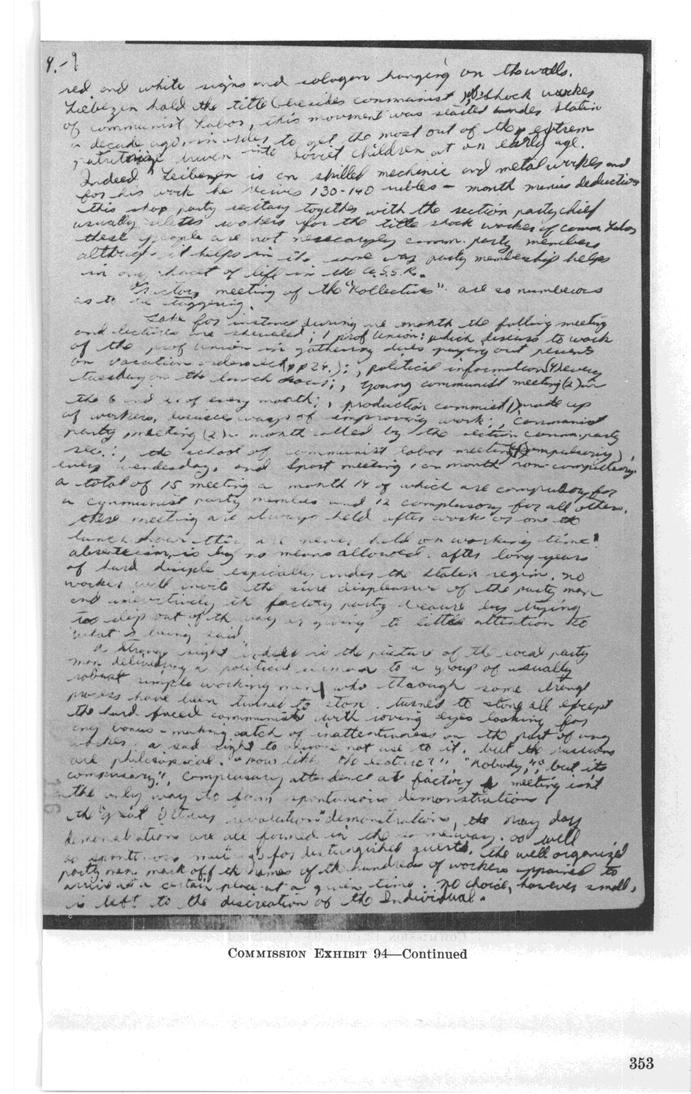 4.-9
red and white signs and sologon hanging on the walls.
Liebezin hold the title (besides communist) of "shock workes
of communist Labor, this movement was started undes Stalin
a decade ago in ordes to get the most out of the extrem
driven into Soviet children at an early age.
Indeed Leibezin is an skilled mechenic and metal workes and
for his work he recives 130-140 rubles a month minus deductions
this shop party secitary together with the section party chief
usually workers for the title shock workes of comm. Labor
these people are not nessecaryly comm. party members
although it helps in the same way party membership helps
in any of life in the U.S.S.R.
Factory meeting of the "Kollective" are so numberous
as to be staggering.
Take for instance during one month the following meeting
and lectures are scheduled; 1 prof union; which discuss to work
of the prof union in gathering dues paying out
on vacation orders ect (pp24.); 4 political information every
tuesday on the lunch hour; 2 young communist meeting on
the 6 and of every month; 1 production committ made up
of workers, ways of improving work; 2 communist
party meeting a month called by the section comm. party
sec.; 4 the school of communist labor meeting (compulsory),
every wendesday, and Sport meeting 1 a month non-compulsory
a total of 15 meeting a month 14 of which are compulsory for
a cymmunist party members and 12 complusory for all others.
these meeting are always held after work or on the
lunch hour they are never held on working time!
absenteeism is by no means allowed. after long years
of hard disiple espicially undes the Stalen regim, no
worker will invite the sure displeasure of the party men
and the factory party because by trying
too slip out of the way or giving to little attention to
what is being said
a strange sight indeed is the picture of the local party
man delivering a political sermon to a group of usually
robust simple working men who through some strange
process have been turned to stone. turned to stone all except
the hard faced communists with roving eyes looking for
any bonus-making catch of inattentiveness on the part of any
workes, a sad sight to anyone not use to it. but the russians
are philosopical. "who likes the lecture?", "nobody", but its
compulsary", compulsary attendence at factory meeting isn't
the only way to form spontanious demonstrations,
the great Octobes revalution demonstrations, the May day
demonstrations are all formed in the same way. as well
as spontenous for distinguished guests, the well organized
party men mark off the names of the hundreds of workers appointed to
arrive at a certain place at a given time. no choice, however small,
is left to the discreation of the Individual.
COMMISSION EXHIBIT 94—Continued
353